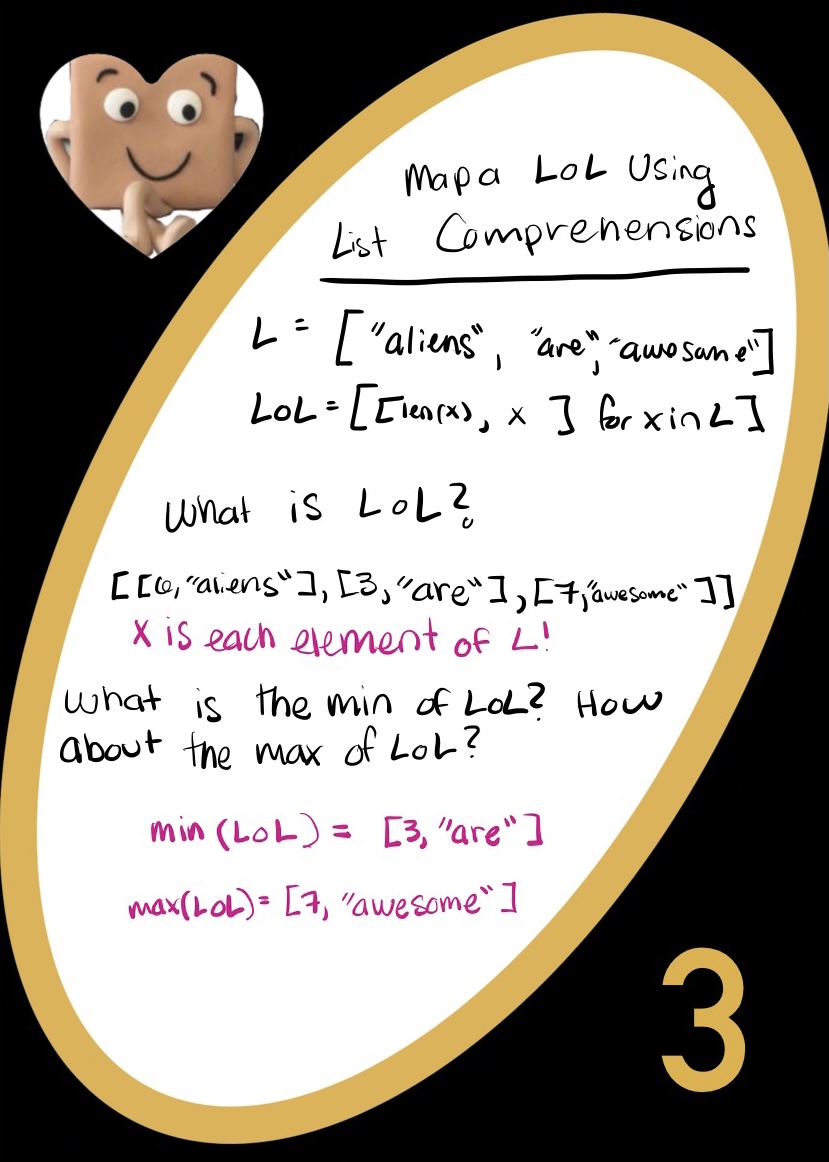 Map a LoL Using
List Comprehensions
L = ["aliens", "are", "awesome"]
LoL = [[len(x), x ] for x in L]
What is LoL?
[[6, "aliens"], [3, "are"], [7, "awesome"]]
X is each element of L!
What is the min of LoL? How
about the max of LoL?
min (LoL) = [3, "are"]
max(LoL) = [7, "awesome"]
3